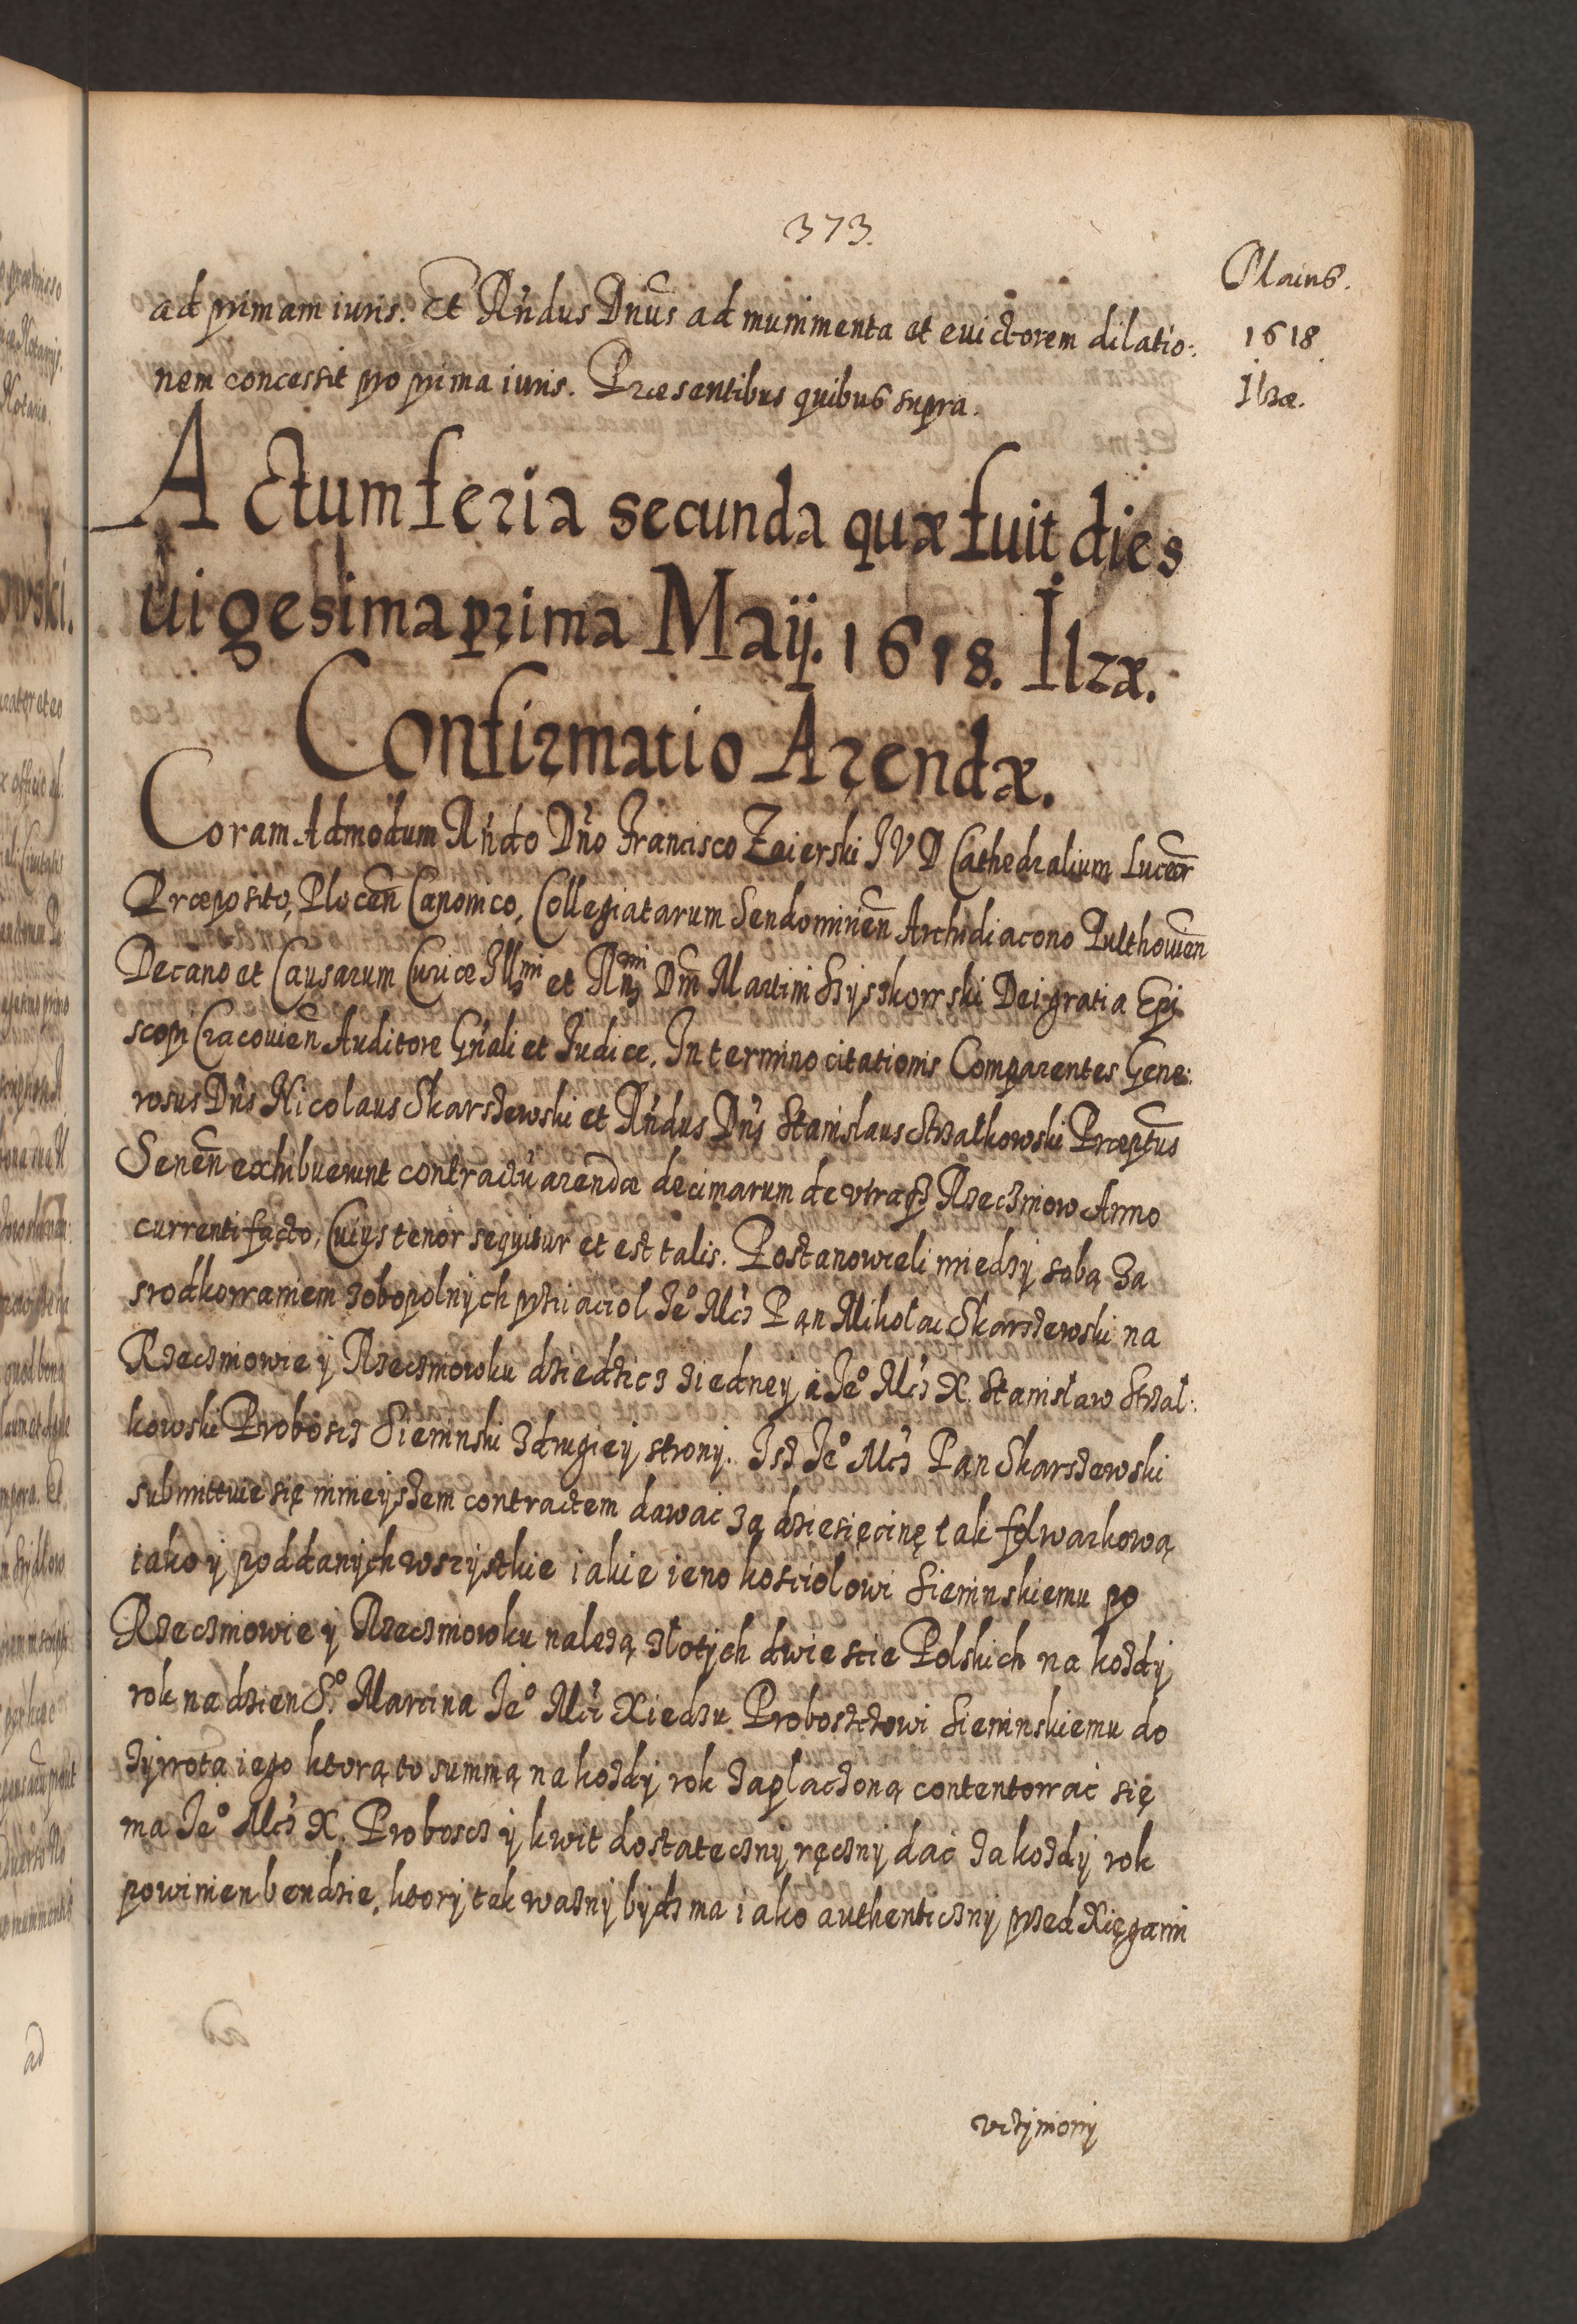 373.
Maius.
1618.
Ilzæ.
ad primam iuris. Et Rn̄dus Dnūs ad munimenta et euictorem dilatio:
nem concessit pro prima iuris. Præsentibus quibus supra.
Actum feria secunda quæ fuit dies
uigesima prima Maij. 1618. Ilzæ.
Confirmatio Arendæ.
Coram Admodum Rn̄do Dn̄o Francisco Zaierski I V D Cathedralium Luceor̄
Præposito, Plocen̄ Canonico, Collegiatarum Sendomirien̄ Archidiacono Pulthouien̄
Decano et Causarum Curiæ Illmi et Rn̄mi Dn̄i Martini Szyszkowski Dei gratia Epi
scopi Cracouien̄ Auditore Gn̄ali et Iudice. In termino citationis Comparentes Gene:
rosus Dn̄s Nicolaus Skarszewski et Rn̄dus Dn̄s Stanislaus Strzalkowski Præptus
Senen̄ exhibuerunt contractū arendæ decimarum de vtraq₃ Rzeczniow Anno
currenti facto, Cuius tenor sequitur et est talis. Postanowieli miedzy sobą za
srodkowaniem zobopolnych prziaciol Ie° Mć Pan Mikołai Skarszewski na
Rzeczniowie y Rzeczniowku dziedzicz ziedney a Ie° Mć X. Stanisław Strzał:
kowski Proboscz Sieninski z drugiey strony. Isz Ie° Mć Pan Skarszewski
submittuie się ninieyszem contractem dawac zą dziesięcinę tak folwarkową
iako y poddanych wszystkie iakie ieno kosciołowi Sieninskiemu po
Rzeczniowie y Rzeczniowku należą złotych dwiescie Polskich na kożdy
rok na dzien S° Marcina Ie° Mći Xiedzu Proboszczowi Sieninskiemu do
zywota iego ktorą to summą na kożdy rok zaplaczoną contentowac się
ma Ie° Mć X. Proboscz y kwit dostateczny ręczny dac za kożdy rok
powinien bendzie, ktory tak wazny bydz ma iako authenticzny przed Xięgami
vczyniony